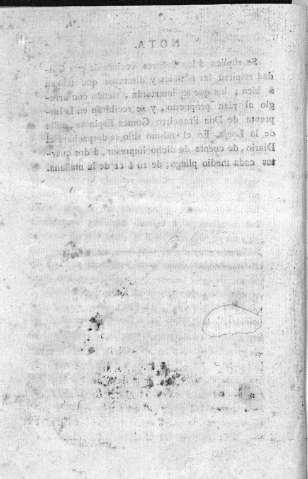 NOTA.
Se suplica á los
dad remitan las noticias y discursos que
á bien; los que se insertarán, siendo con arre-
glo al plan propuesto, y se recibirán en la Im-
prenta de Don Francisco Gomez Espinosa, calle
de la Lonja. En el mismo sitio se despachará el
Diario, de cuenta de dicho Impresor, á dos quar-
tos cada medio pliego, de 10 á 12 de la mañana.